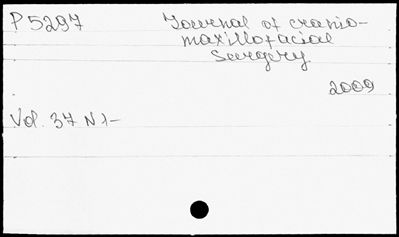 P5297
Journal of cranio-
maxillofacial
Surgery
2009
Vol. 37 N 1-